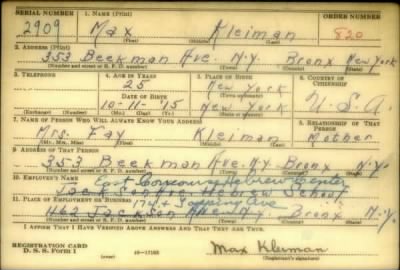 SERIAL NUMBER 1. NAME (Print) ORDER NUMBER
2909 Max Kleiman 820
(First) (Middle) (Last)
2. ADDRESS (Print)
353 Beekman Ave. N.Y. Bronx New York
(Number and street or R. F. D. number) (Town) (County) (State)
3. TELEPHONE 4. AGE IN YEARS 5. PLACE OF BIRTH 6. COUNTRY OF CITIZENSHIP
25 New York
DATE OF BIRTH (Town or county)
10-11-'15 New York U.S.A.
(Exchange) (Number) (Mo.) (Day) (Yr.) (State or country)
7. NAME OF PERSON WHO WILL ALWAYS KNOW YOUR ADDRESS 8. RELATIONSHIP OF THAT PERSON
Mrs. Fay Kleiman Mother
(Mr., Mrs., Miss) (First) (Middle) (Last)
9. ADDRESS OF THAT PERSON
353 Beekman Ave. N.Y. Bronx N.Y.
(Number and street or R. F. D. number) (Town) (County) (State)
10. EMPLOYER'S NAME
East Hebrew Center
Jackson Ave. Hebrew School
11. PLACE OF EMPLOYMENT OR BUSINESS
174 + Ave
1162 Jackson Ave. N.Y. Bronx N.Y.
(Number and street or R. F. D. number) (Town) (County) (State)
I AFFIRM THAT I HAVE VERIFIED ABOVE ANSWERS AND THAT THEY ARE TRUE.
REGISTRATION CARD
D. S. S. Form 1 (over) 16-17105 Max Kleiman
(Registrant's signature)